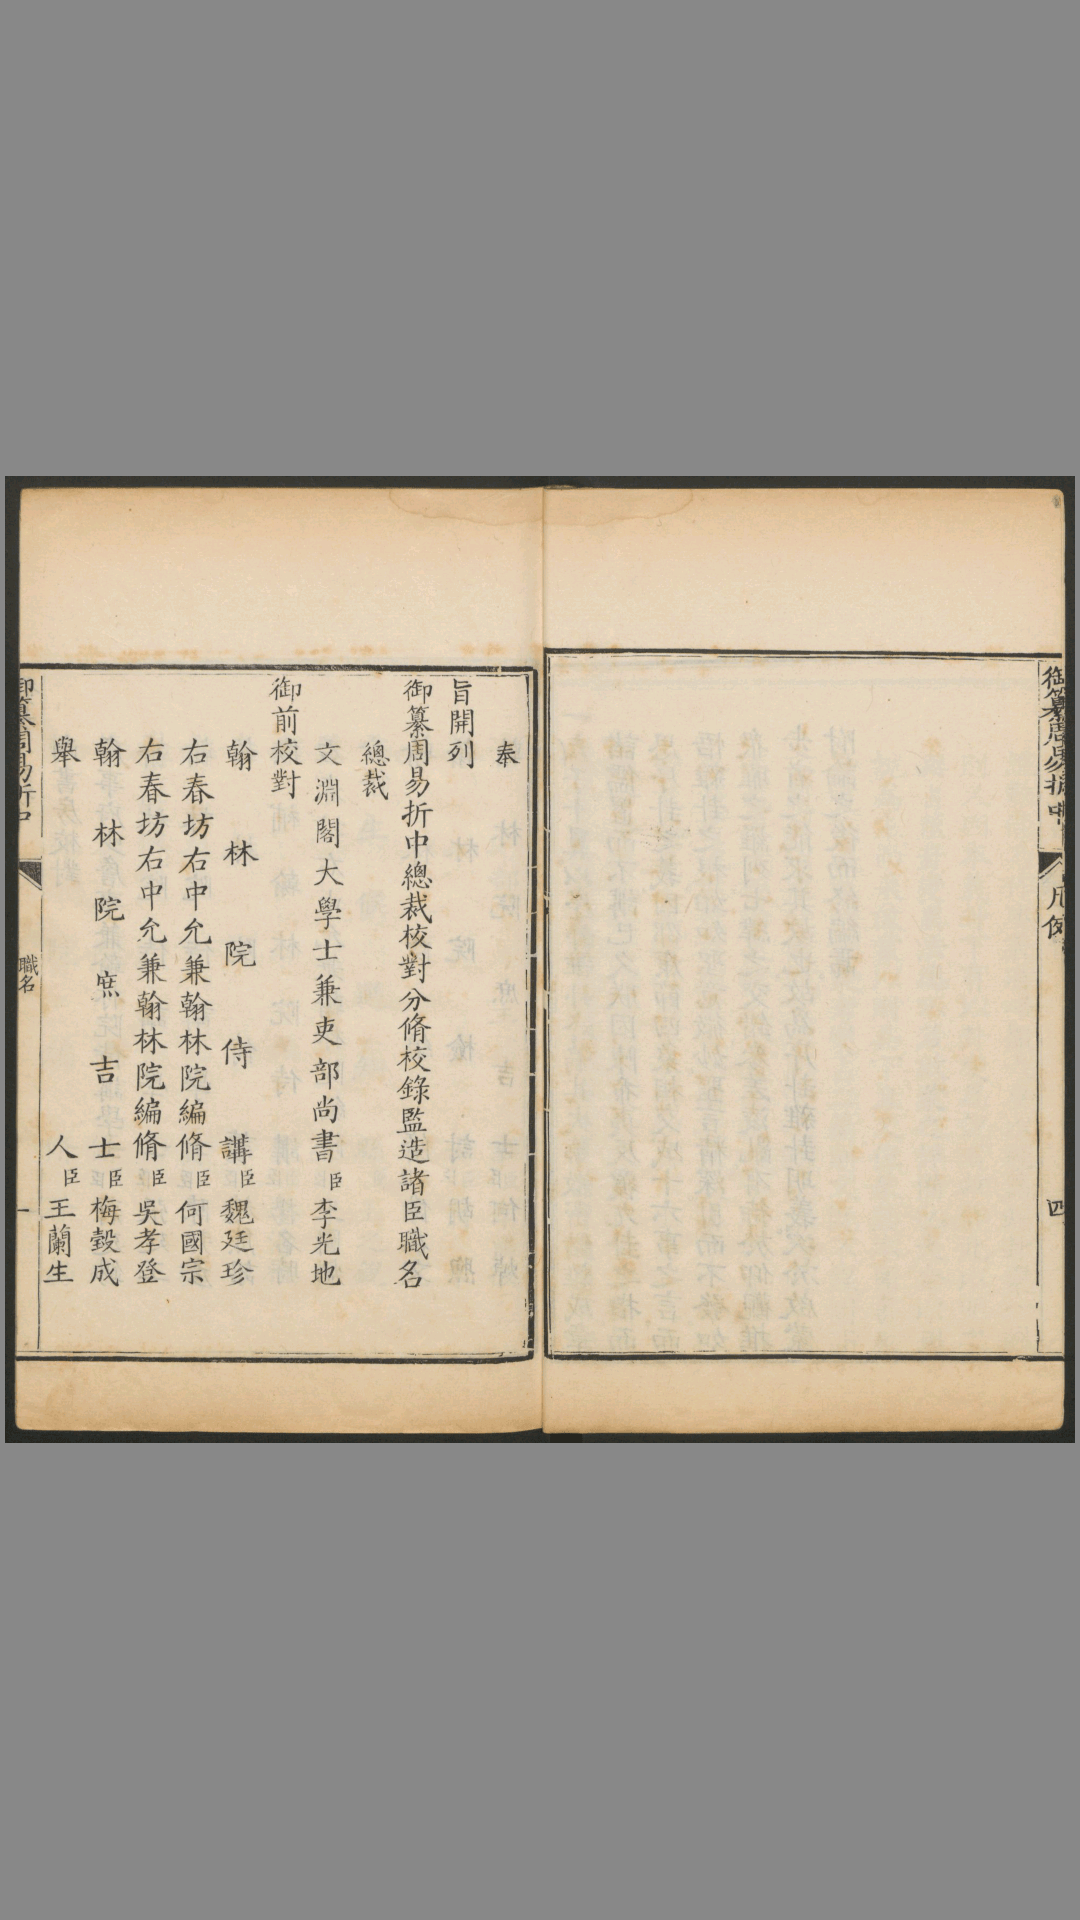 御纂周易折中
凡例
四
奉
旨開列
御纂周易折中總裁校對分脩校錄監造諸臣職名
總裁
文淵閣大學士兼吏部尚書臣李光地
御前校對
翰林院侍講臣魏廷珍
右春坊右中允兼翰林院編脩臣何國宗
右春坊右中允兼翰林院編脩臣吳孝登
翰林院庶吉士臣梅瑴成
舉人臣王蘭生
御纂周易折中
職名
一